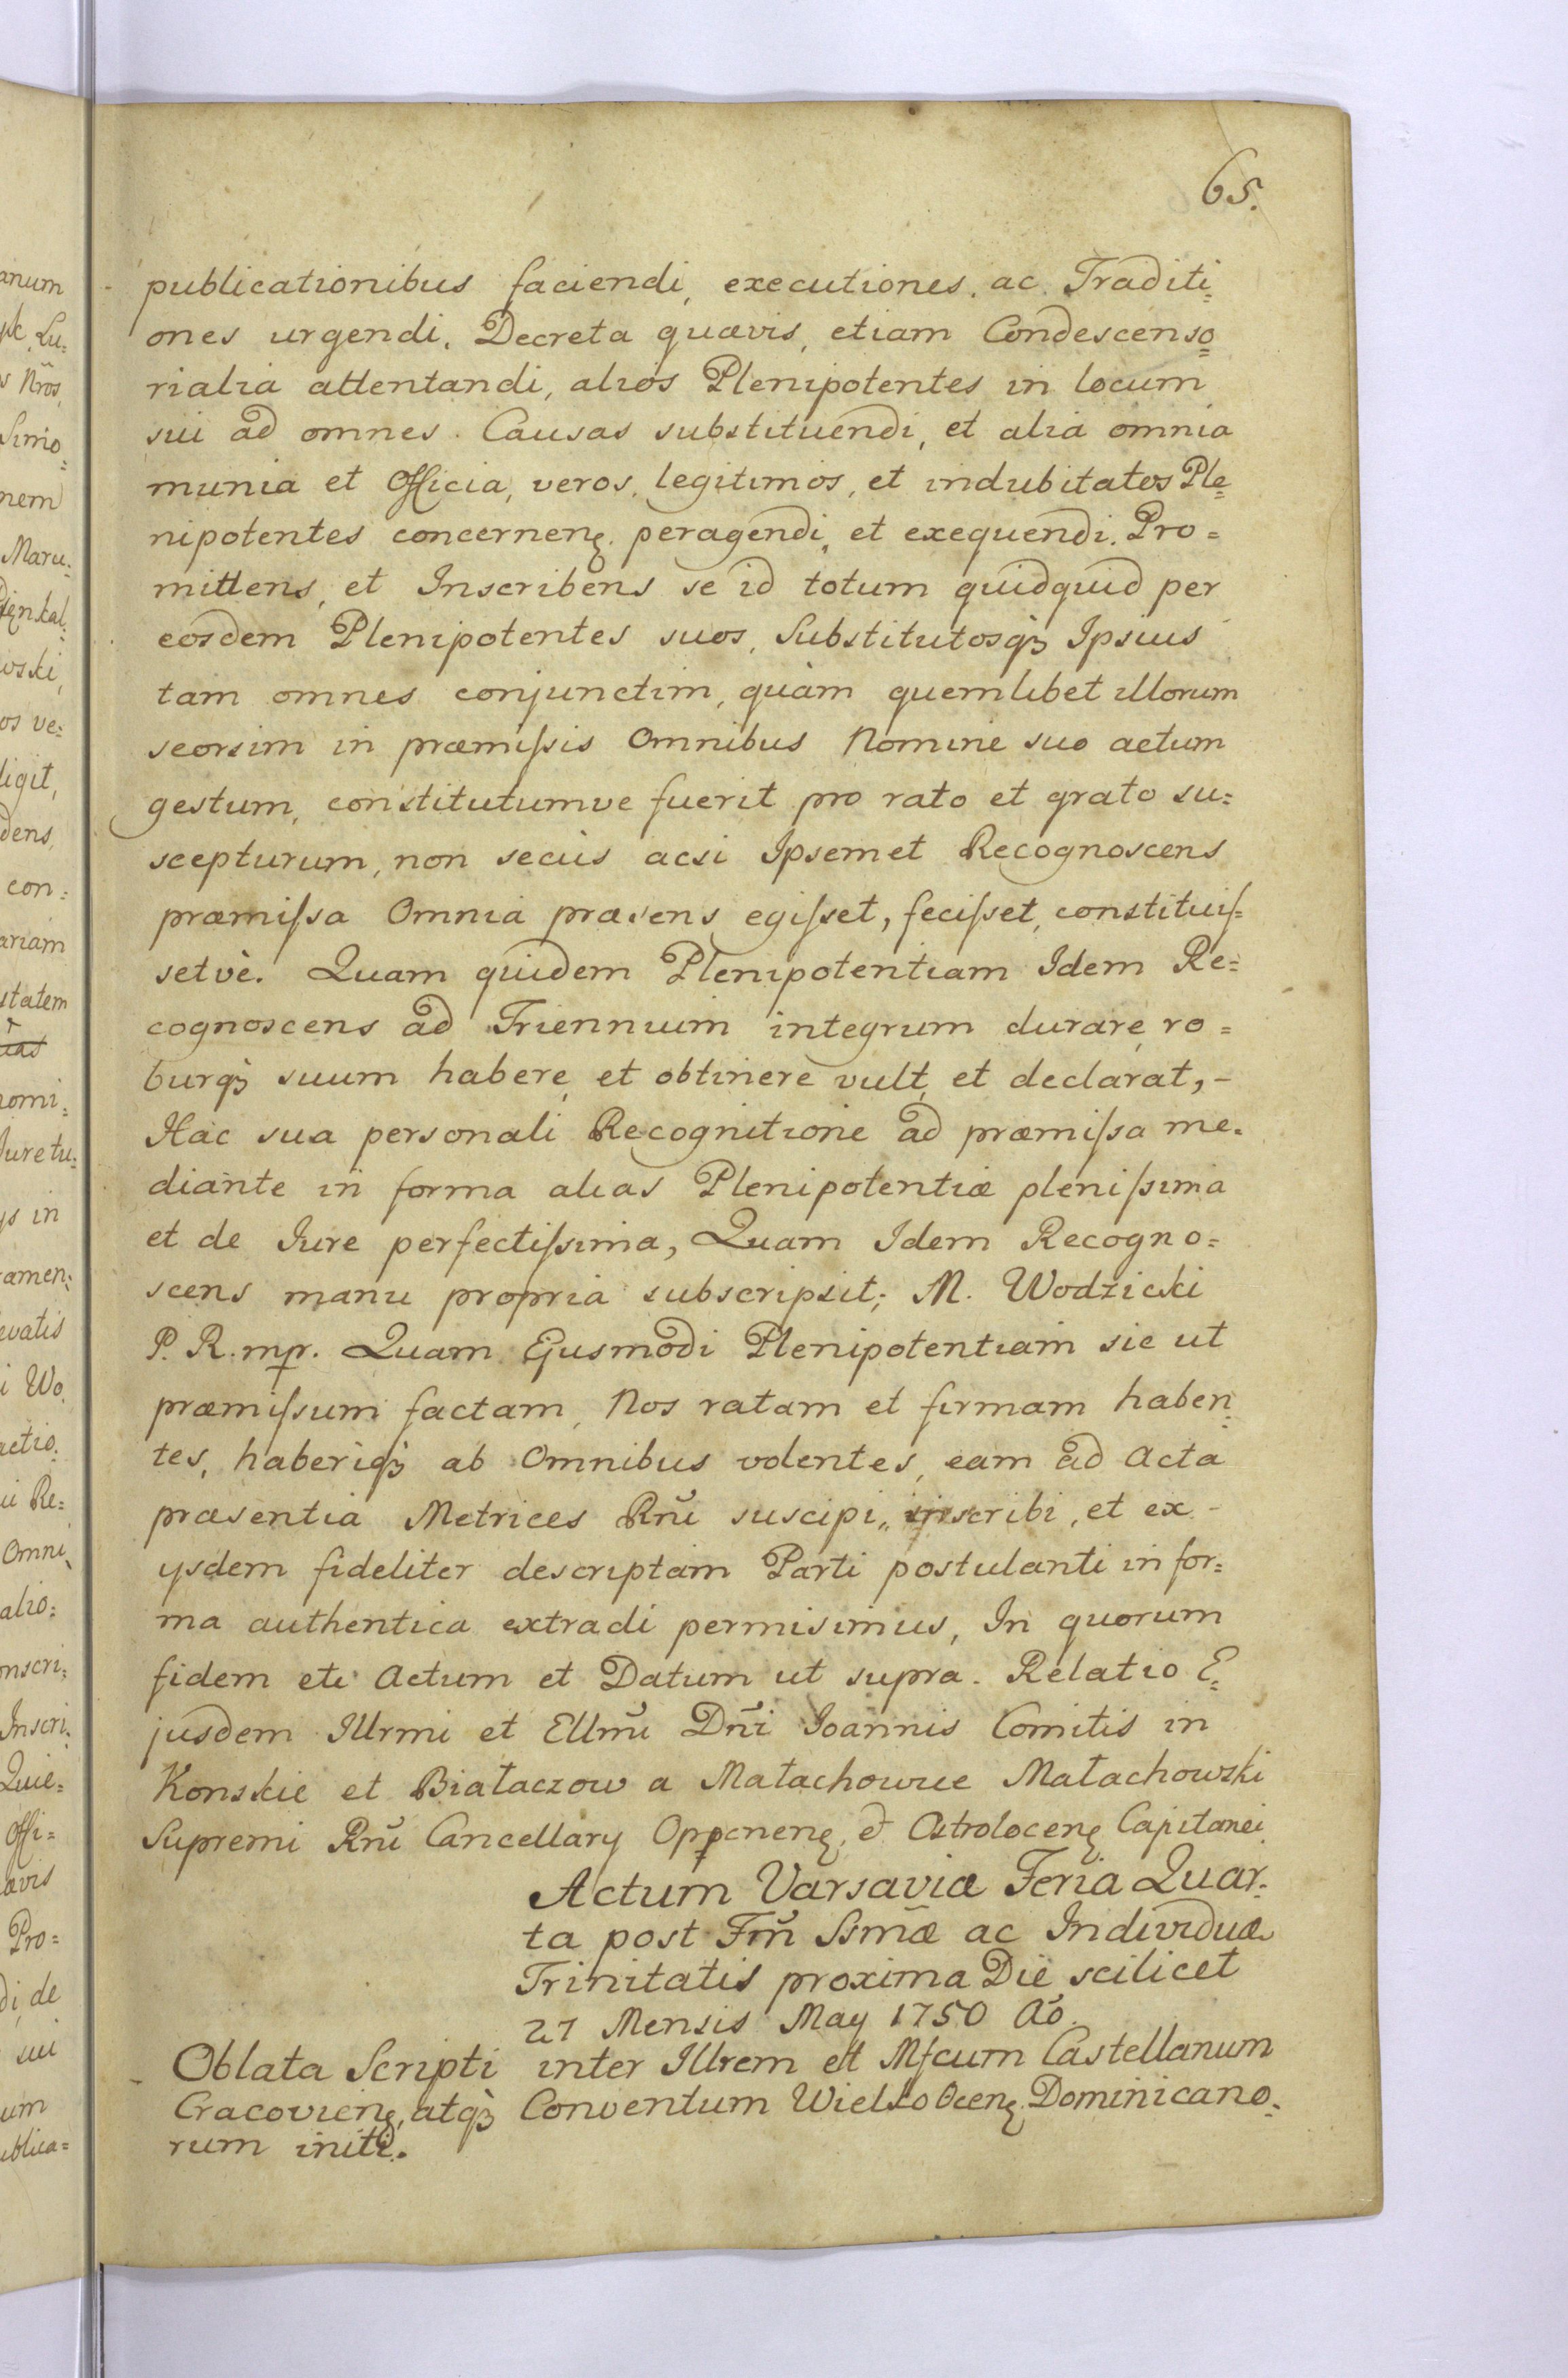 65.
publicationibus faciendi, executiones, ac Traditi=
ones urgendi, Decreta quævis, etiam Condescenso=
rialia attentandi, alios Plenipotentes in locum
sui ad omnes Causas substituendi, et alia omnia
munia et Officia, veros, legitimos, et indubitatos Ple=
nipotentes concernenę. peragendi, et exequendi. Pro=
mittens, et Inscribens se id totum quidquid per
eosdem Plenipotentes suos, Substitutosqꝫ Ipsius
tam omnes conjunctim, quàm quemlibet illorum
seorsim in præmiſsis Omnibus Nomine suo actum
gestum, constitutumve fuerit pro rato et grato su=
scepturum, non secùs acsi Ipsemet Recognoscens
præmiſsa Omnia præsens egiſset, feciſset, constituiſ=
setvè. Quam quidem Plenipotentiam Idem Re=
cognoscens ad Triennium integrum durare, ro=
burqꝫ suum habere, et obtinere vult, et declarat, -
Hac sua personali Recognitione ad præmiſsa me=
diante in forma alias Plenipotentiæ pleniſsima
et de Iure perfectiſsima, Quam Idem Recogno=
scens manu propria subscripsit; M. Wodzicki
P. R. mp. Quam Ejusmodi Plenipotentiam sic ut
præmiſsum factam, Nos ratam et firmam haben=
tes, haberiqꝫ ab Omnibus volentes, eam ad Acta
præsentia Metrices Rñi suscipi, inscribi, et ex -
ysdem fideliter descriptam Parti postulanti in for=
ma authentica extradi permisimus, In quorum
fidem etc Actum et Datum ut supra. Relatio E=
jusdem Illrmi et Ellm̃i Dñi Ioannis Comitis in
Konskie et Białaczow a Małachowice Małachowski
Supremi Rñi Cancellary Oppcnenę, et Ostrolecenę Capitanei
Actum Varsaviæ Feria Quar=
ta post Fm̃ Ssmæ ac Individuæ
Trinitatis proxima Die scilicet
27 Mensis May 1750 Ao.
Oblata Scripti inter Illrem et Mfcum Castellanum
Cracovienę, atqꝫ Conventum Dominicano=
rum initi.